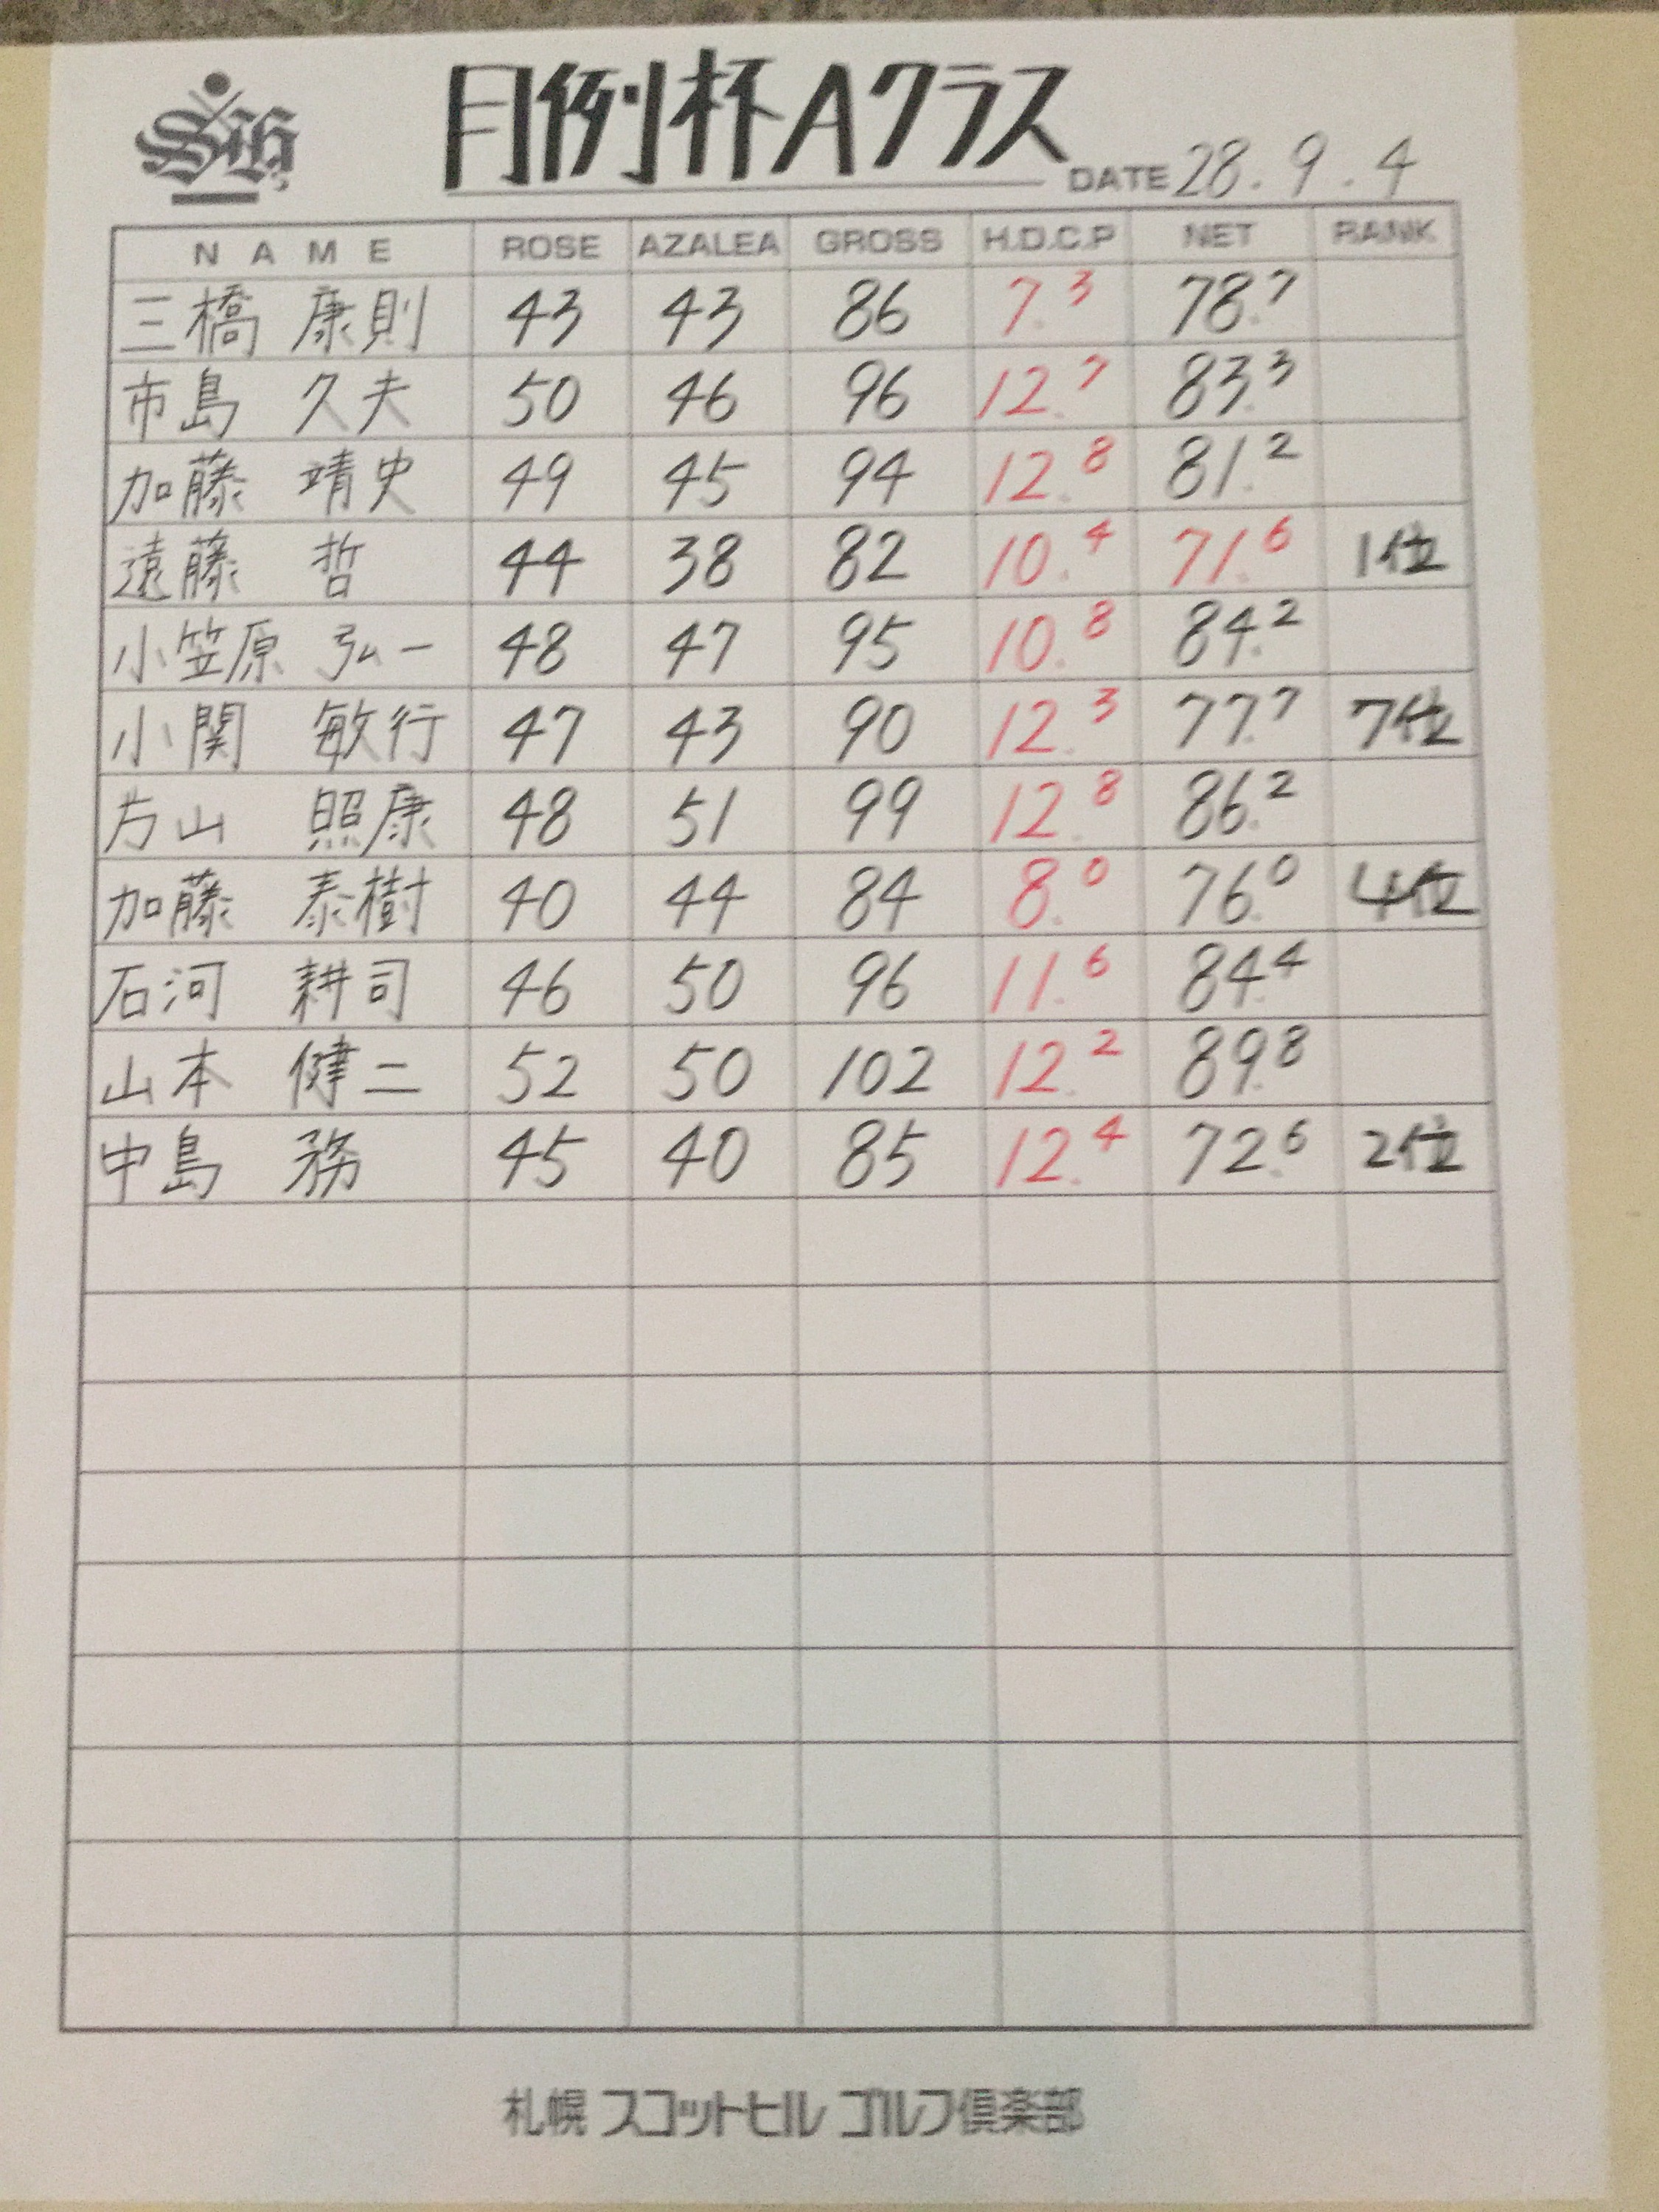 月例杯Aクラス
DATE 28.9.4
NAME ROSE AZALEA GROSS H.D.C.P NET RANK
三橋 康則 43 43 86 7.3 78.7
市島 久夫 50 46 96 12.7 83.3
加藤 靖史 49 45 94 12.8 81.2
遠藤 哲 44 38 82 10.4 71.6 1位
小笠原 弘一 48 47 95 10.8 84.2
小関 敏行 47 43 90 12.3 77.7 7位
片山 照康 48 51 99 12.8 86.2
加藤 泰樹 40 44 84 8.0 76.0 4位
石河 耕司 46 50 96 11.6 84.4
山本 健二 52 50 102 12.2 89.8
中島 務 45 40 85 12.4 72.6 2位
札幌 スコットヒル ゴルフ倶楽部